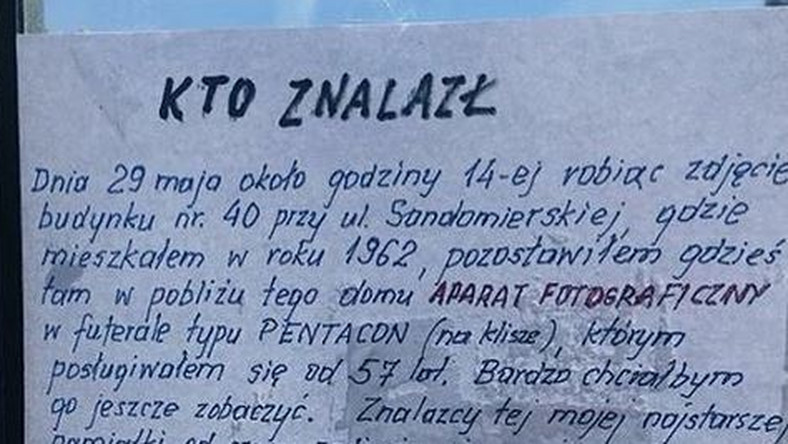 KTO ZNALAZŁ
Dnia 29 maja około godziny 14-ej robiąc zdjęcie
budynku nr. 40 przy ul. Sandomierskiej, gdzie
mieszkałem w roku 1962, pozostawiłem gdzieś
tam w pobliżu tego domu APARAT FOTOGRAFICZNY
w futerale typu PENTACON (na klisze), którym
posługiwałem się od 57 lat. Bardzo chciałbym
go jeszcze zobaczyć. Znalazcy tej mojej najstarszej
pamiątki